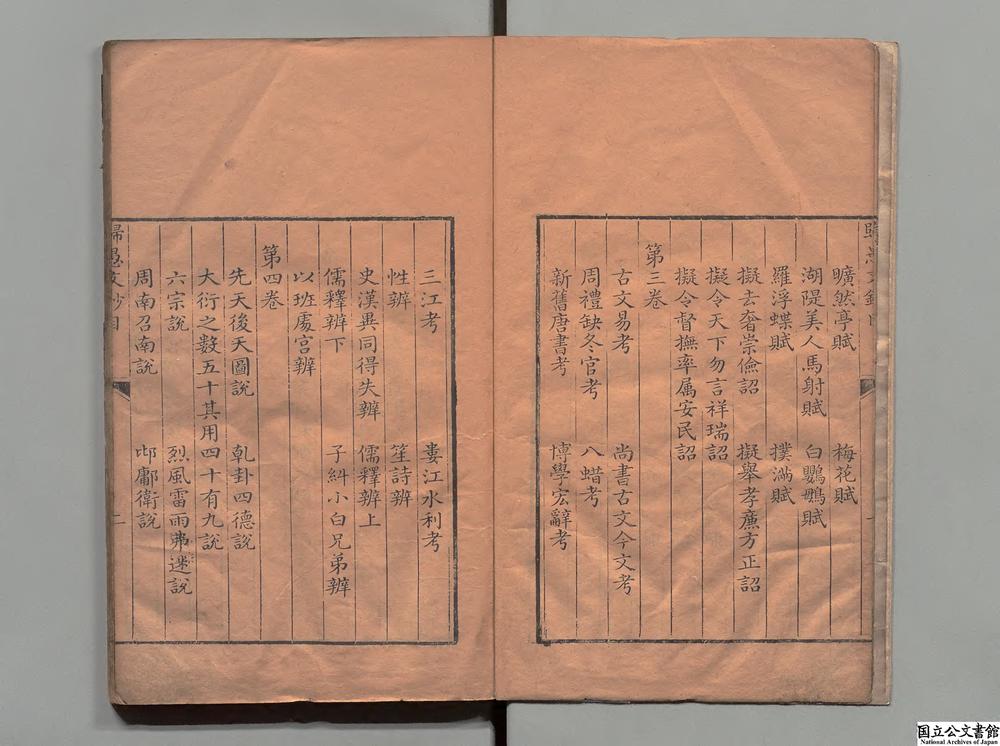 曠然亭賦　梅花賦
湖隄美人馬射賦　白鸚鵡賦
羅浮蝶賦　撲滿賦
擬去奢崇儉詔　擬舉孝廉方正詔
擬令天下勿言祥瑞詔
擬令督撫率属安民詔
第三卷
古文易考　尚書古文今文考
周禮缺冬官考　八蜡考
新舊唐書考　博學宏辭考
三江考　婁江水利考
性辨　笙詩辨
史漢異同得失辨　儒釋辨上
儒釋辨下　子糾小白兄弟辨
以班處宫辨
第四卷
先天後天圖說　乹卦四德說
大衍之数五十其用四十有九說
六宗說　烈風雷雨弗迷說
周南召南說　邶鄘衛說
歸愚文鈔目　二
国立公文書館
National Archives of Japan